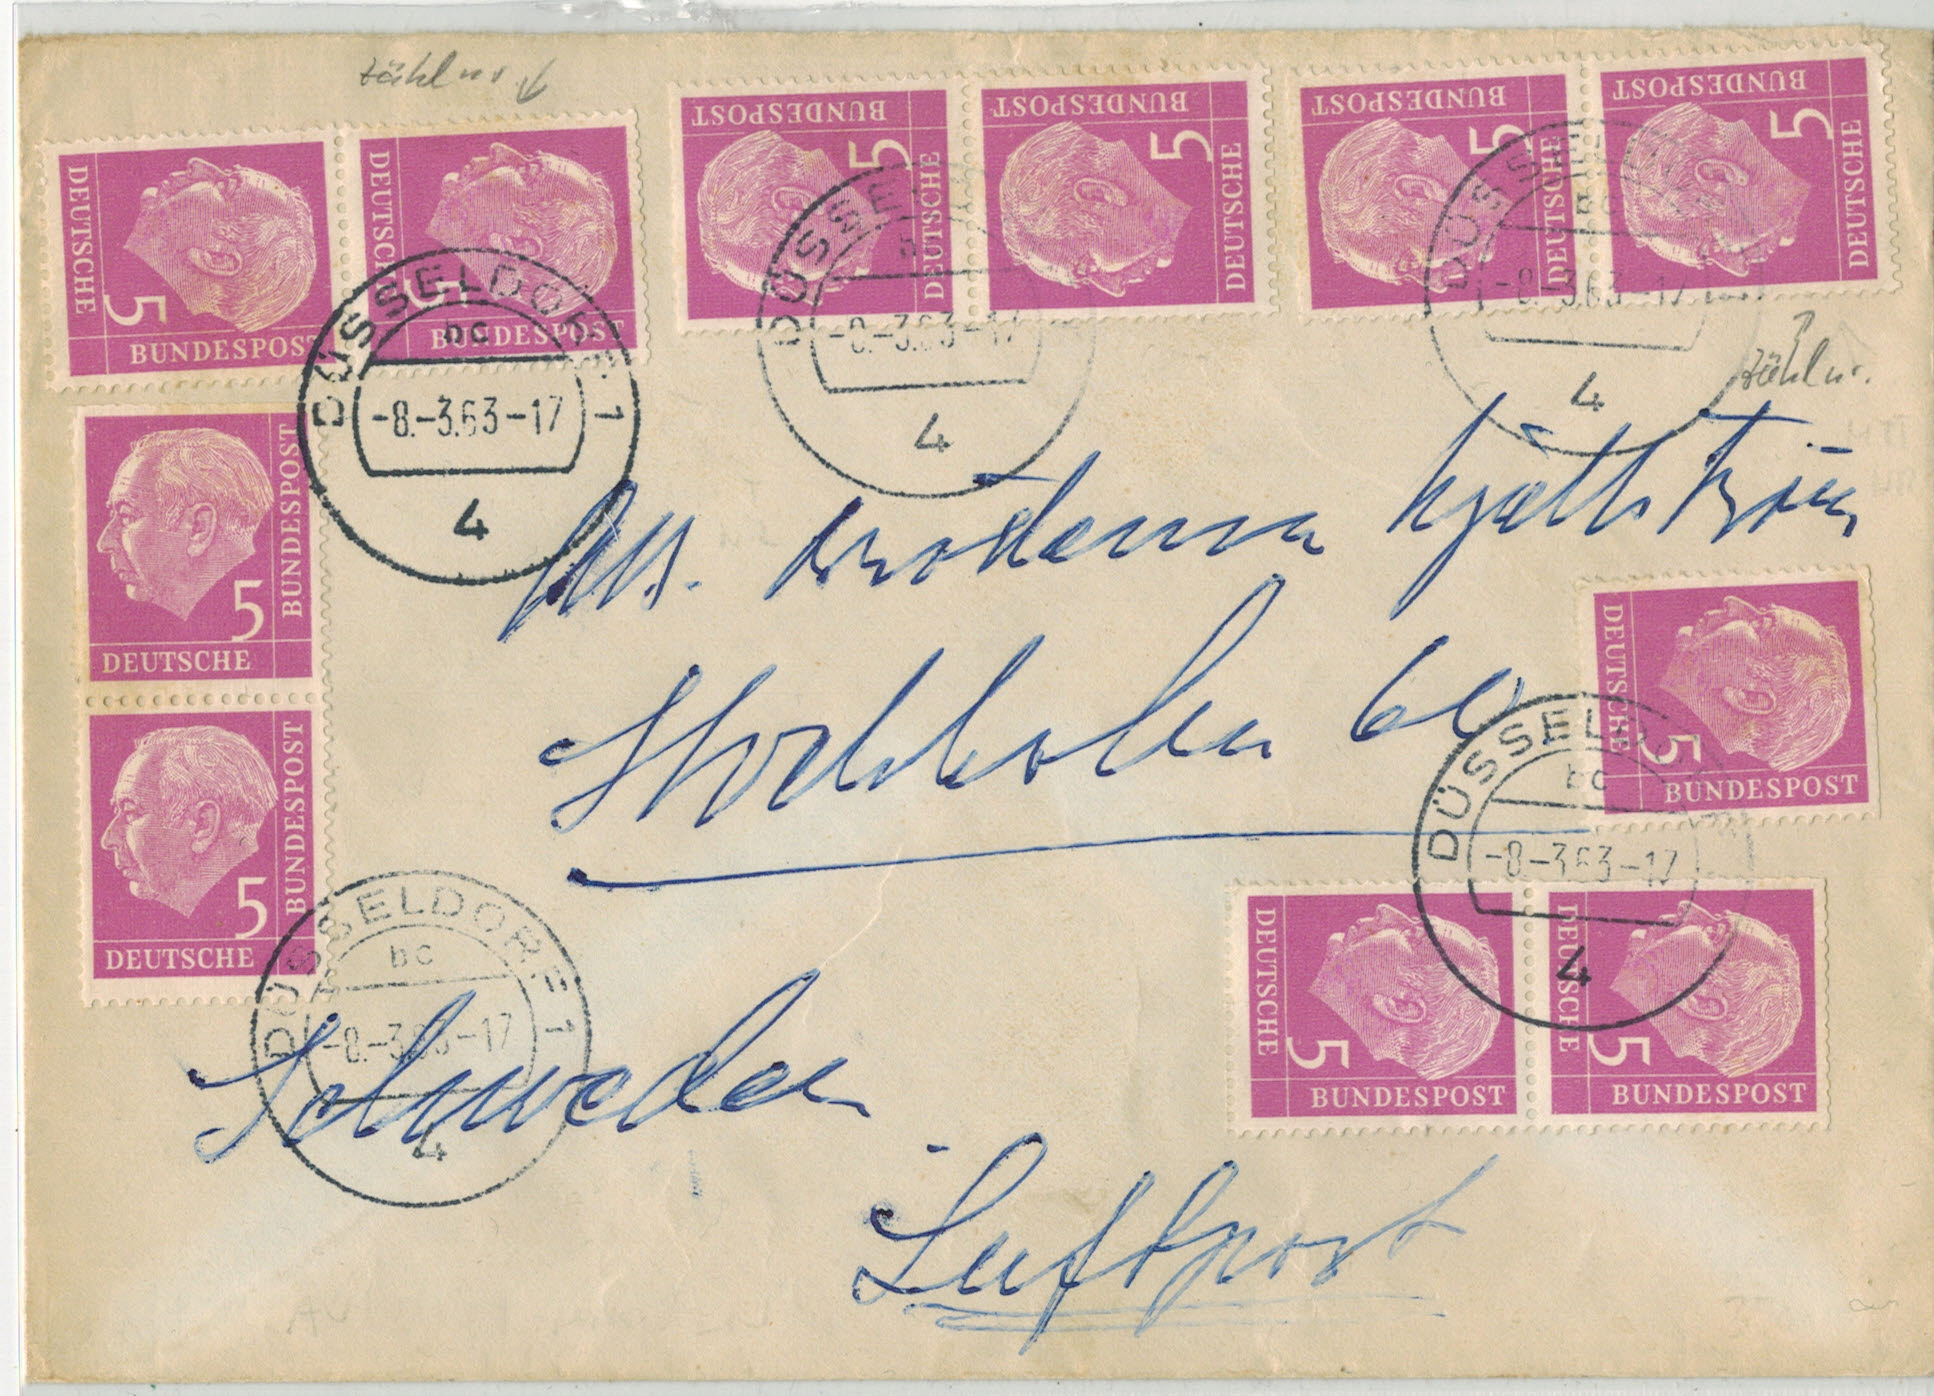 zählnr.
DEUTSCHE 5 BUNDESPOST
DEUTSCHE 5 BUNDESPOST
5 BUNDESPOST DEUTSCHE
5 BUNDESPOST DEUTSCHE
5 BUNDESPOST DEUTSCHE
5 BUNDESPOST DEUTSCHE
zählnr.
DÜSSELDORF 1
bc
-8.-3.63-17
4
DÜSSE
-8.-3.63-17
4
DÜSSELD
bc
-8.-3.63-17
4
5 BUNDESPOST
DEUTSCHE
5 BUNDESPOST
DEUTSCHE
Stockholm 60
DEUTSCHE 5 BUNDESPOST
DÜSSELDO
bc
-8.-3.63-17
4
DEUTSCHE 5 BUNDESPOST
DEUTSCHE 5 BUNDESPOST
DÜSSELDORF 1
bc
-8.-3.63-17
4
Schweden
Luftpost